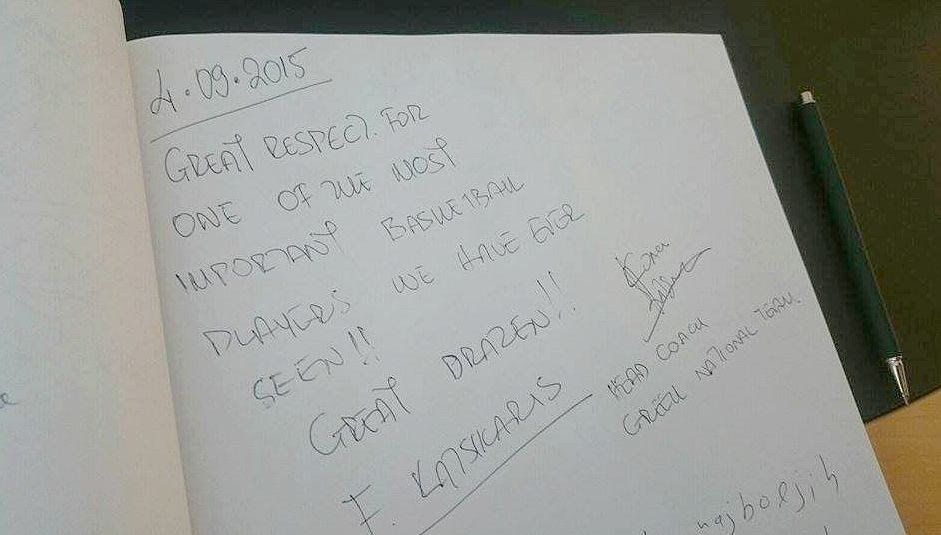 4.09.2015
GREAT RESPECT. FOR
ONE OF THE MOST
IMPORTANT BASKETBALL
PLAYERS WE HAVE EVER
SEEN!!
GREAT DRAZEN!!
F. KATSIKARIS
HEAD COACH
GREEK NATIONAL TEAM.
najboljih